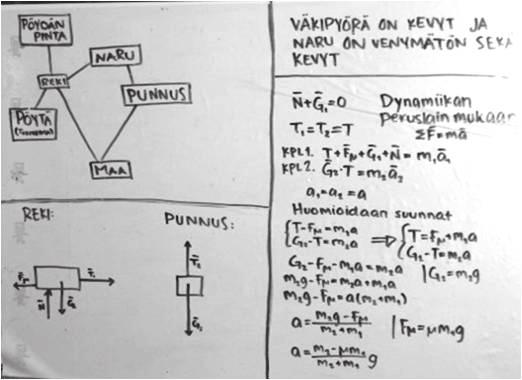 PÖYDÄN
PINTA
NARU
REKI
PUNNUS
PÖYTÄ
MAA
REKI:
F̄μ
N̄
PUNNUS:
VÄKIPYÖRÄ ON KEVYT JA
NARU ON VENYMÄTÖN SEKÄ
KEVYT
N̄+Ḡ₁=0
T₁=T₂=T
Dynamiikan
peruslain mukaan
ΣF̄=mā
KPL1. T̄+F̄μ+Ḡ₁+N̄=m₁ā₁
KPL2. Ḡ₂·T=m₂ā₂
a₁=a₂=a
Huomioidaan suunnat
{T-Fμ=m₁a ⇒ {T=Fμ+m₁a
{G₂-T=m₂a {G₂-T=m₂a
G₂-Fμ-m₁a=m₂a |G₂=m₂g
m₂g-Fμ=m₂a+m₁a
m₂g-Fμ=a(m₂+m₁)
a=m₂g-Fμ/m₂+m₁ |Fμ=μm₁g
a=m₂-μm₁/m₂+m₁ g